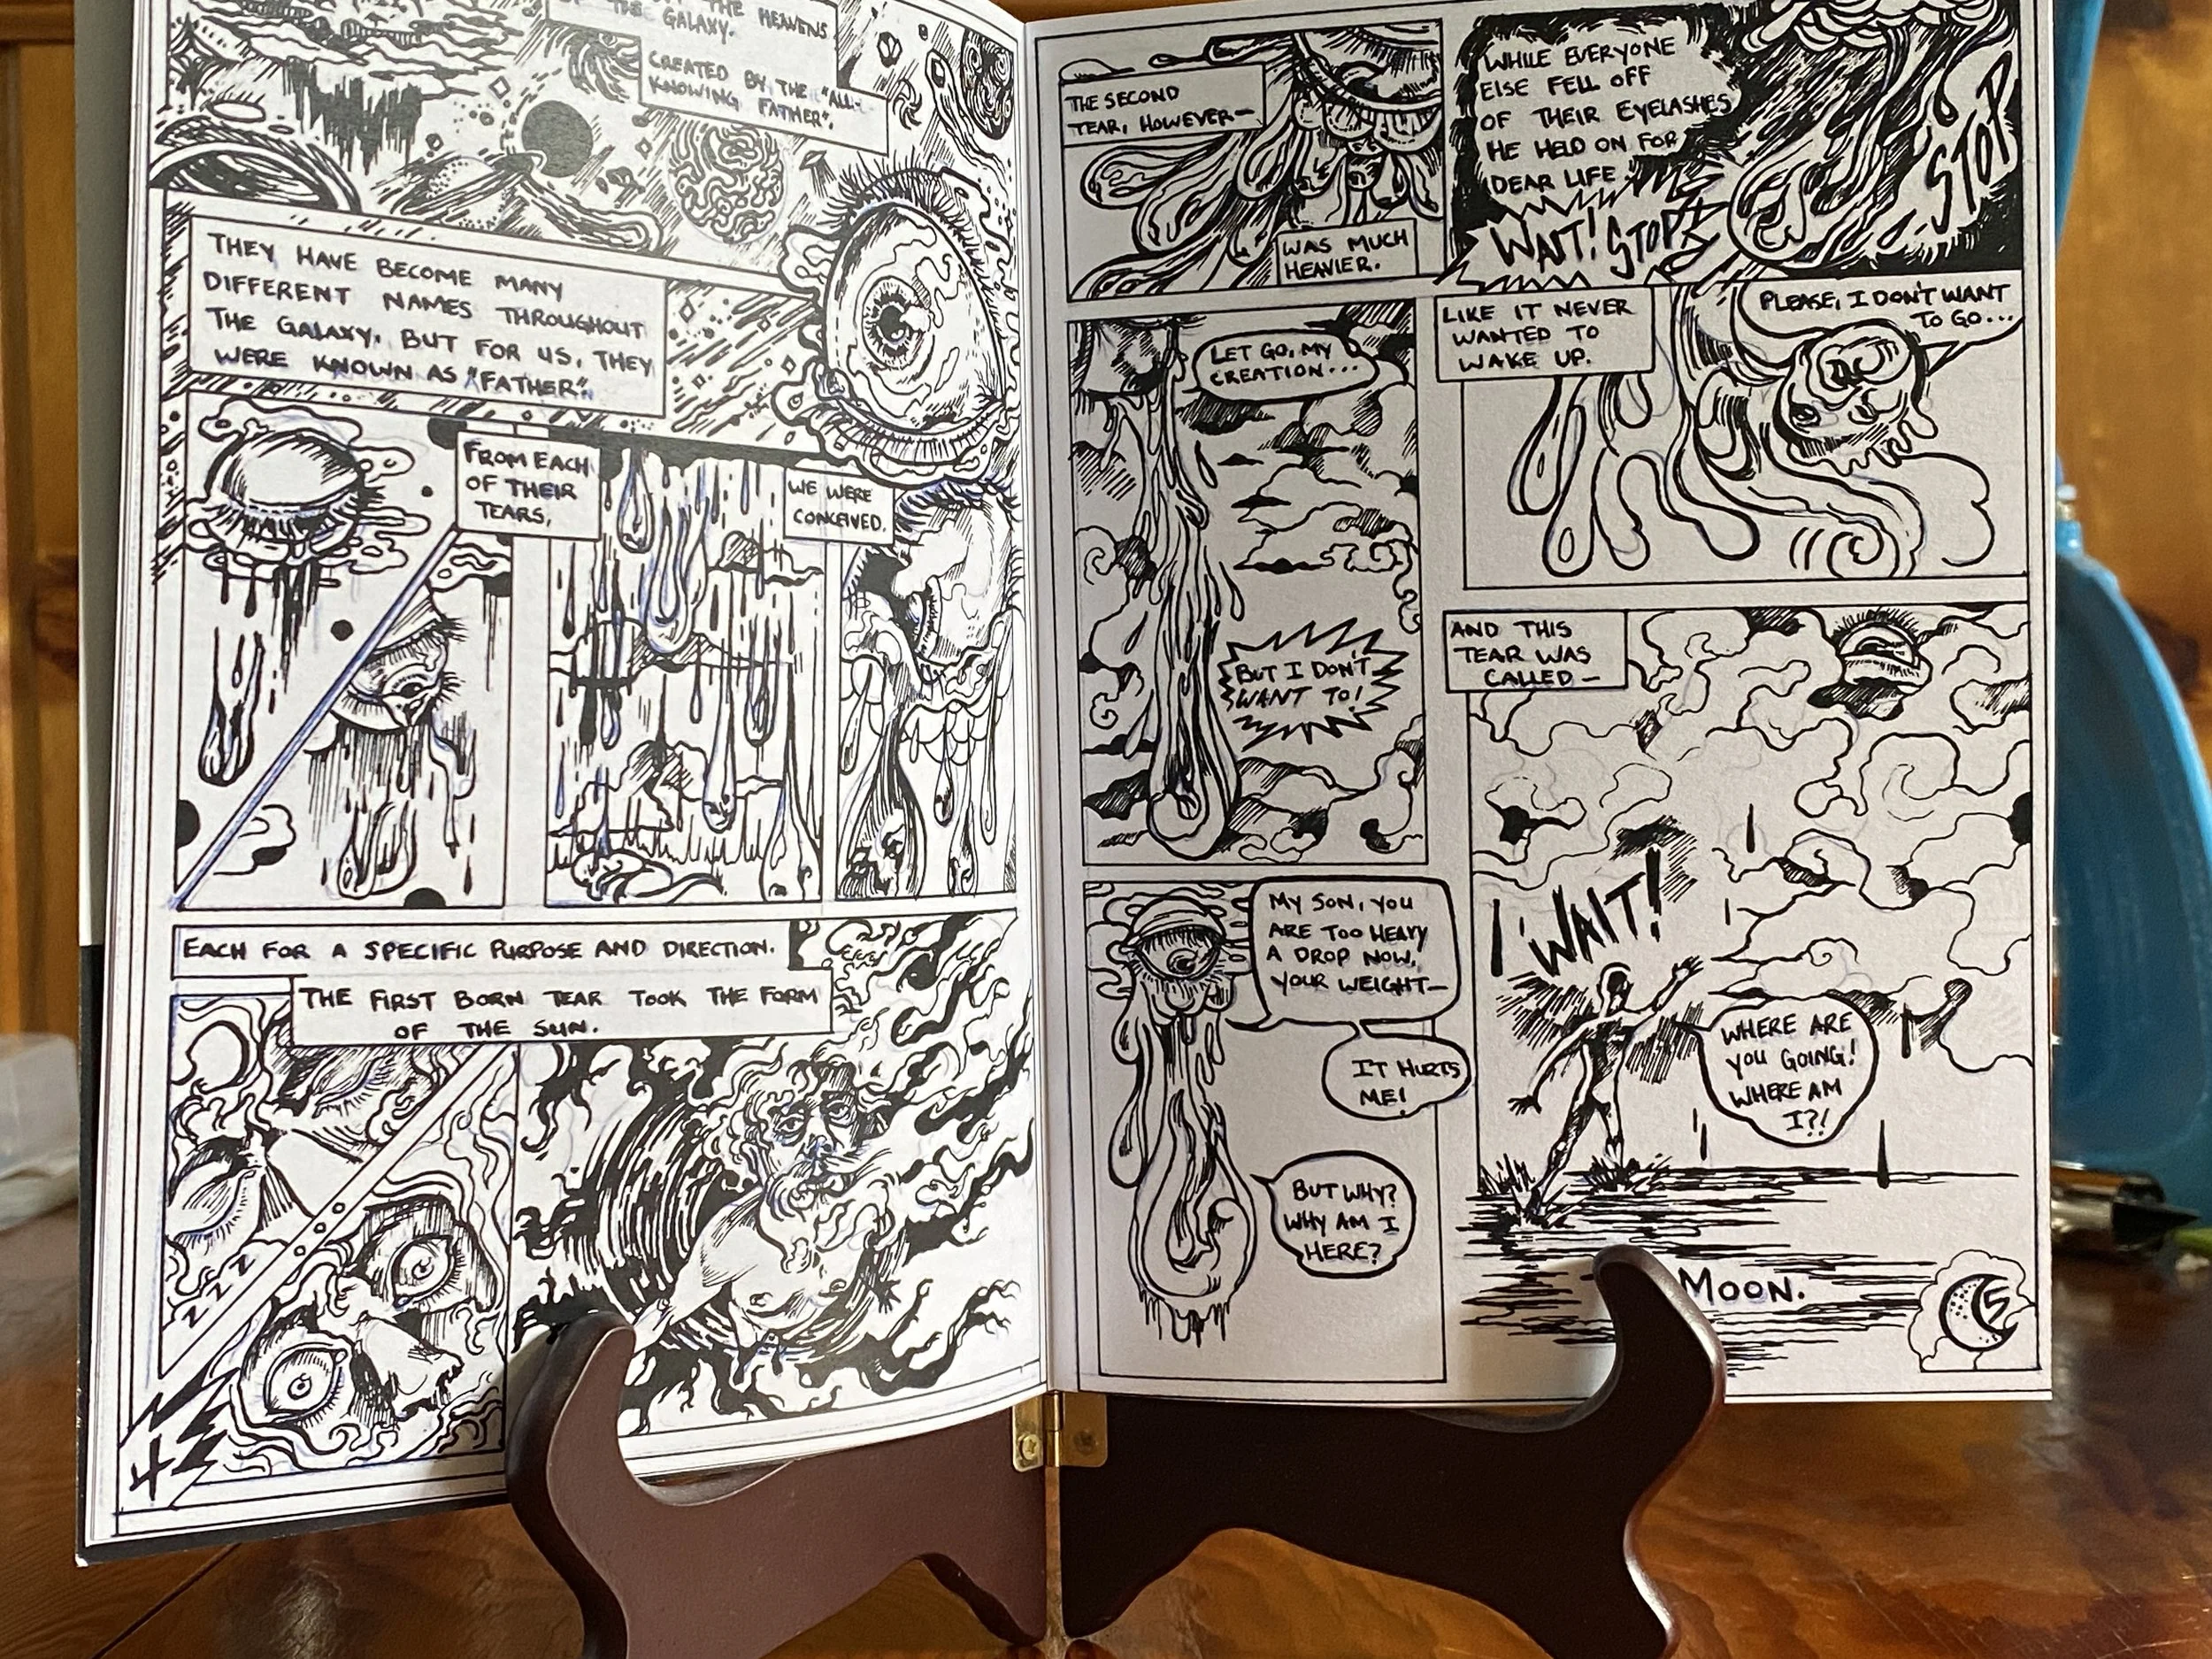 THE HEAVENS
OF THE GALAXY.
CREATED BY THE "ALL-
KNOWING FATHER".
THEY HAVE BECOME MANY
DIFFERENT NAMES THROUGHOUT
THE GALAXY, BUT FOR US, THEY
WERE KNOWN AS "FATHER".
FROM EACH
OF THEIR
TEARS,
WE WERE
CONCEIVED.
EACH FOR A SPECIFIC PURPOSE AND DIRECTION.
THE FIRST BORN TEAR TOOK THE FORM
OF THE SUN.
ZZZ
ZZZ
4
THE SECOND
TEAR, HOWEVER—
WAS MUCH
HEAVIER.
WHILE EVERYONE
ELSE FELL OFF
OF THEIR EYELASHES
HE HELD ON FOR
DEAR LIFE.
WAIT! STOP!
STOP
LET GO, MY
CREATION...
BUT I DON'T
WANT TO!
LIKE IT NEVER
WANTED TO
WAKE UP.
PLEASE, I DON'T WANT
TO GO...
MY SON, YOU
ARE TOO HEAVY
A DROP NOW,
YOUR WEIGHT—
IT HURTS
ME!
BUT WHY?
WHY AM I
HERE?
AND THIS
TEAR WAS
CALLED—
WAIT!
WHERE ARE
YOU GOING!
WHERE AM
I?!
MOON.
5